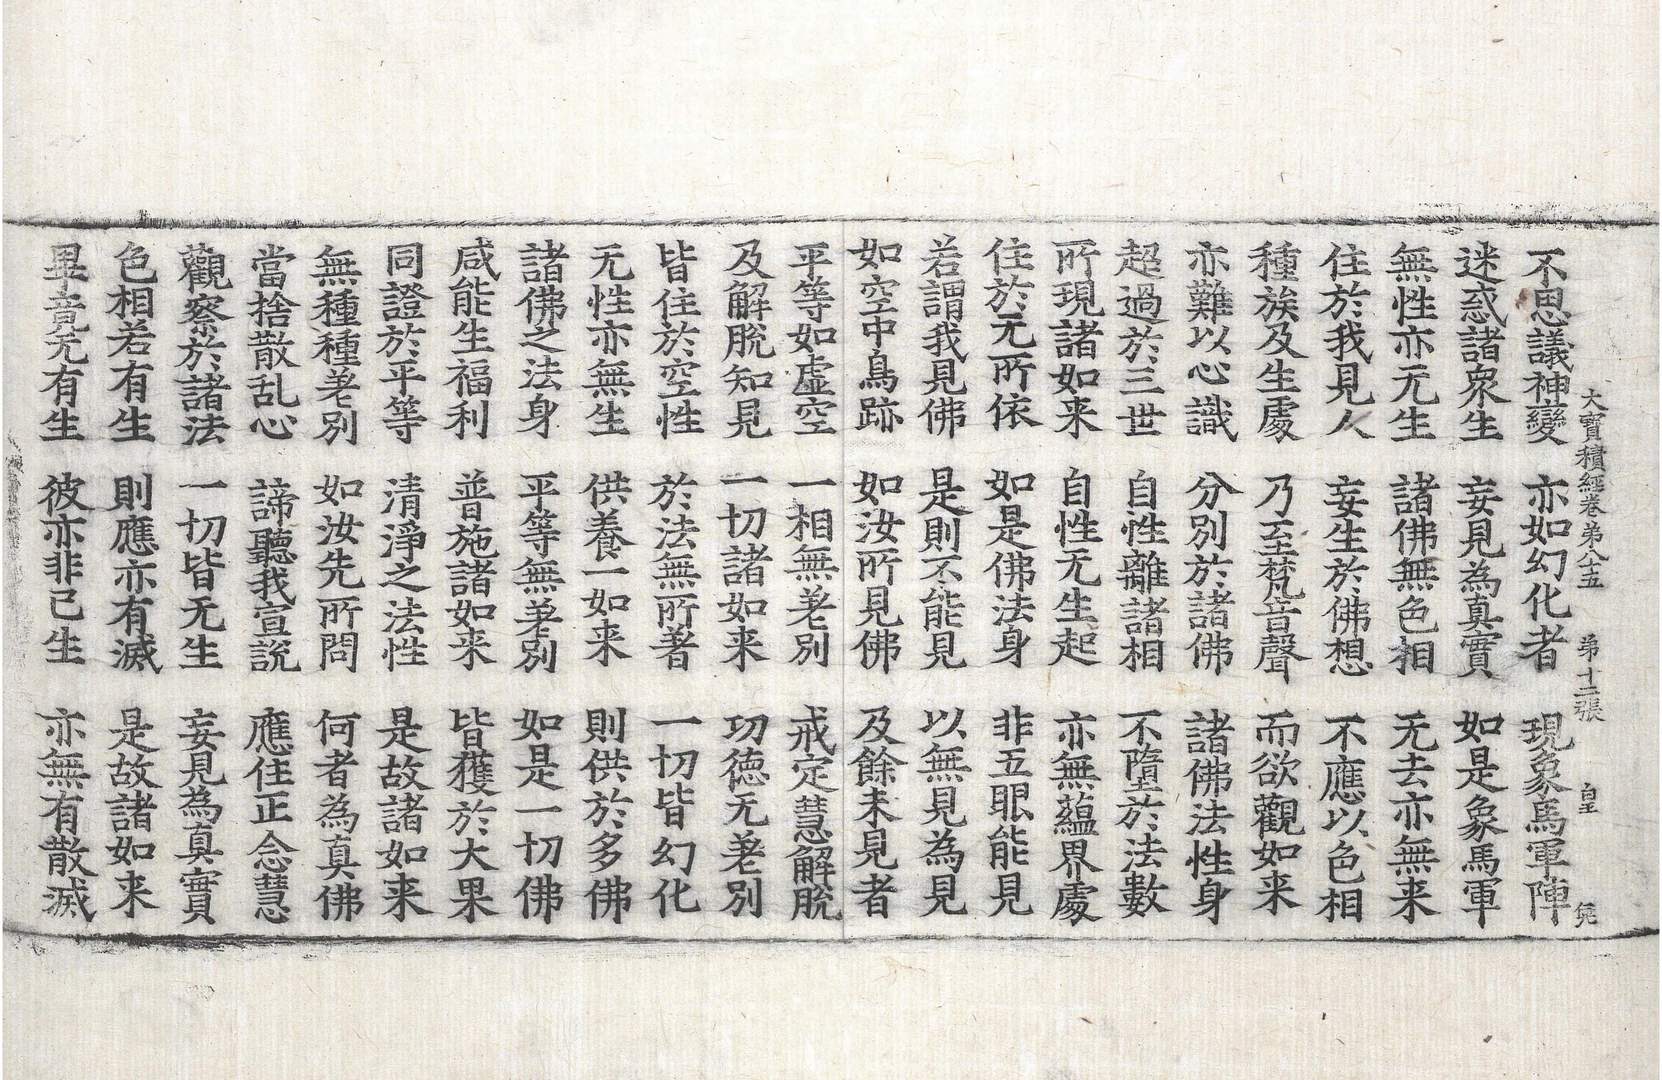 大寶積經卷第八十五　第十二張　皇
不思議神變　亦如幻化者　現象馬軍陣
迷惑諸衆生　妄見為真實　如是象馬軍
無性亦无生　諸佛無色相　无去亦無来
住於我見人　妄生於佛想　不應以色相
種族及生處　乃至梵音聲　而欲觀如来
亦難以心識　分別於諸佛　諸佛法性身
超過於三世　自性離諸相　不墮於法數
所現諸如来　自性无生起　亦無蘊界處
住於无所依　如是佛法身　非五眼能見
若謂我見佛　是則不能見　以無見為見
如空中鳥跡　如汝所見佛　及餘未見者
平等如虛空　一相無差別　戒定慧解脫
及解脫知見　一切諸如来　功德无差別
皆住於空性　於法無所著　一切皆幻化
无性亦無生　供養一如来　則供於多佛
諸佛之法身　平等無差別　如是一切佛
咸能生福利　普施諸如来　皆獲於大果
同證於平等　清淨之法性　是故諸如来
無種種差別　如汝先所問　何者為真佛
當捨散乱心　諦聽我宣說　應住正念慧
觀察於諸法　一切皆无生　妄見為真實
色相若有生　則應亦有滅　是故諸如来
畢竟无有生　彼亦非已生　亦無有散滅